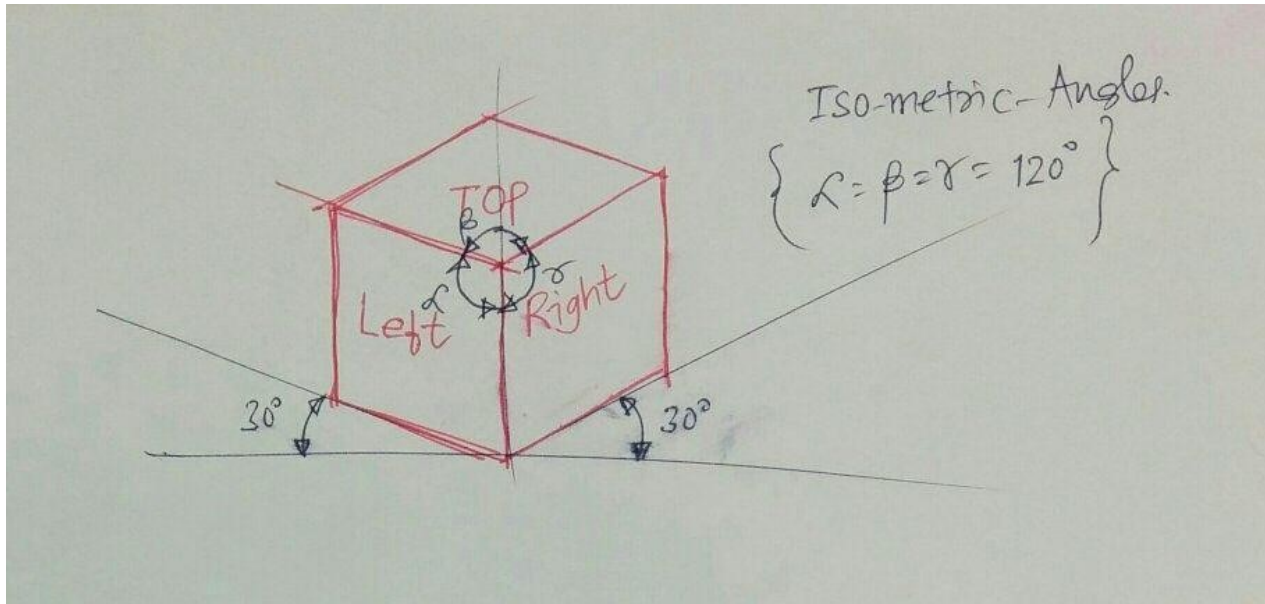 Iso-metric-Angles.
{ α = β = γ = 120° }
TOP
β
α
γ
Left
Right
30°
30°